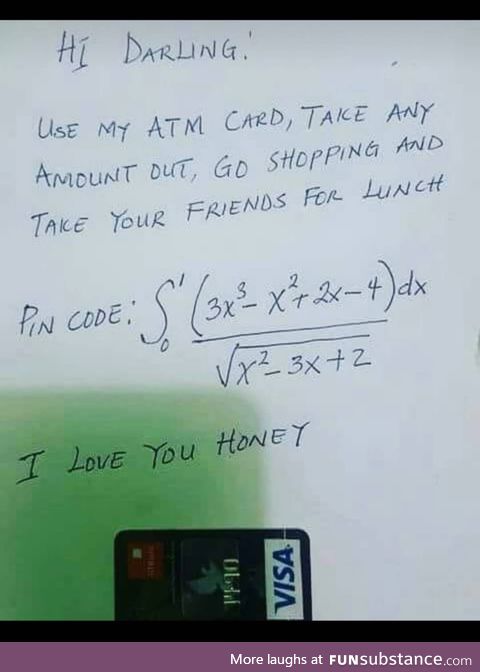 HI DARLING!
USE MY ATM CARD, TAKE ANY
AMOUNT OUT, GO SHOPPING AND
TAKE YOUR FRIENDS FOR LUNCH
PIN CODE: ∫₀¹ (3x³ - x² + 2x - 4)dx
√x² - 3x + 2
I LOVE YOU HONEY
VISA
More laughs at FUNsubstance.com